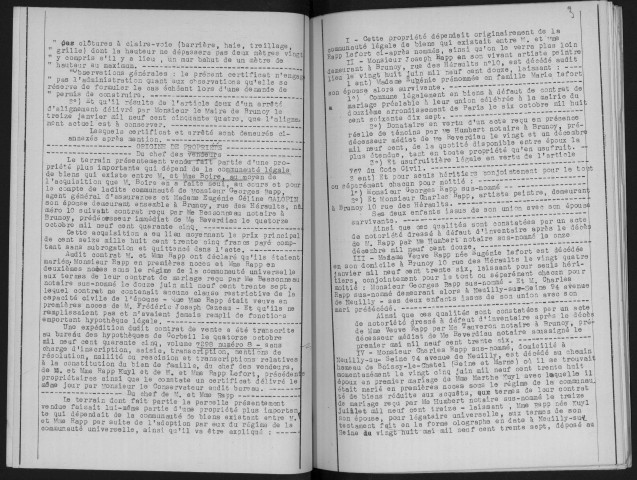 " Des clôtures à claire-voie (barrière, haie, treillage,
" grille) dont la hauteur ne dépassera pas deux mètres vingt
" y compris s'il y a lieu, un mur bahut de un mètre de
" hauteur au maximum.
" "Observations générales : le présent certificat n'engage
" pas l'administration quant aux observations qu'elle se
" réserve de formuler le cas échéant lors d'une demande de
" permis de construire.
2°) Et qu'il résulte de l'article deux d'un arrêté
d'alignement délivré par Monsieur le Maire de Brunoy le
treize janvier mil neuf cent cinquante quatre, que l'aligne-
ment actuel est à conserver.
Lesquels certificat et arrêté sont demeurés ci-
annexés après mention.
ORIGINE DE PROPRIETE
Du chef des vendeurs
Le terrain présentement vendu fait partie d'une pro-
priété plus importante qui dépend de la communauté légale
de biens qui existe entre M. et Mme Boire, au moyen de
l'acquisition que M. Boire en a faite seul, au cours et pour
le compte de ladite communauté de Monsieur Georges Rapp,
agent général d'assurances et Madame Eugénie Céline GALOPIN
son épouse demeurant ensemble à Brunoy, rue des Hérault, nu-
méro 10 suivant contrat reçu par Me Bezsonneau notaire à
Brunoy, prédécesseur immédiat de Me Waverdieu le quatorze
octobre mil neuf cent quarante cinq.
Cette acquisition a eu lieu moyennant le prix principal
de cent seize mille huit cent trente cinq francs payé comp-
tant sans subrogation et quittancé dans l'acte.
Audit contrat M. et Mme Rapp ont déclaré qu'ils étaient
mariés Monsieur Rapp en premières noces et Mme Rapp en
deuxièmes noces sous le régime de la communauté universelle
aux termes de leur contrat de mariage reçu par Me Bezsonneau
notaire sus-nommé le douze juin mil neuf cent trente sept,
lequel contrat ne contenait aucune clause restrictive de la
capacité civile de l'épouse - Que Mme Rapp était veuve en
premières noces de M. Frédéric Joseph Causse - Et qu'ils ne
remplissaient pas et n'avaient jamais rempli de fonctions
emportant hypothèque légale.
Une expédition dudit contrat de vente a été transcrite
au bureau des hypothèques de Corbeil le quatorze octobre
mil neuf cent quarante cinq, volume 4295 numéro 8 - sans
charge d'inscription, saisie, transcription, mentions de
résolution, nullité ou rescision et transcriptions relatives
à la constitution du bien de famille, du chef des vendeurs,
de M. et Mme Rapp Kuyl et de M. et Mme Rapp Lefort, précédents
propriétaires ainsi que le constate un certificat délivré le
même jour par Monsieur le Conservateur audit bureau.
Du chef de M. et Mme Rapp
Le terrain dont fait partie la parcelle présentement
vendue faisait lui-même partie d'une propriété plus importan-
te qui dépendait de la communauté de biens existant entre M.
et Mme Rapp par suite de l'adoption par eux du régime de la
communauté universelle, ainsi qu'il va être expliqué :
3
I - Cette propriété dépendait originairement de la
communauté légale de biens qui existait entre M. et Mme
Rapp Lefort ci-après nommés, ainsi qu'on le verra plus loin
II - Monsieur Joseph Rapp en son vivant artiste peintre
demeurant à Brunoy, rue des Hérault n°10, est décédé audit
lieu le vingt huit juin mil neuf cent douze, laissant :
1 ent) Madame Eugénie prénommée en famille Maria Lefort
son épouse alors survivante.
1°) Commune légalement en biens à défaut de contrat de
mariage préalable à leur union célébrée à la mairie du
douzième arrondissement de Paris le six octobre mil huit
cent soixante dix sept.
2°) Donataire en vertu d'un acte reçu en présence
réelle de témoins par Me Humbert notaire à Brunoy, pré-
décesseur médiat de Me Waverdieu le vingt et un décembre
mil neuf cent, de la quotité disponible entre époux la
plus étendue, tant en toute propriété qu'en usufruit.
3°) Et usufruitière légale en vertu de l'article
767 du Code Civil.
2 ent) Et pour seuls héritiers conjointement pour le tout
ou séparément chacun pour moitié :
1°) Monsieur Georges Rapp sus-nommé.
2°) Et Monsieur Charles Rapp, artiste peintre, demeurant
à Brunoy 10 rue des Hérault.
Ses deux enfants issus de son union avec son épouse
survivante.
Ainsi que ces qualités sont constatées par un acte
de notoriété dressé à défaut d'inventaire après le décès
de M. Rapp par Me Humbert notaire sus-nommé le onze
décembre mil neuf cent douze.
III - Madame Veuve Rapp née Augénie Lefort est décédée
en son domicile à Brunoy 10 rue des Hérault le vingt quatre
janvier mil neuf cent trente six, laissant pour seuls héri-
tiers, conjointement pour le tout ou séparément chacun pour
moitié : Monsieur Georges Rapp sus-nommé - Et M. Charles
Rapp sus-nommé demeurant alors à Neuilly-sur-Seine 74 avenue
de Neuilly - ses deux enfants issus de son union avec son
mari prédécédé.
Ainsi que ces qualités sont constatées par un acte
de notoriété dressé à défaut d'inventaire après le décès
de Mme Veuve Rapp par Me Sauveron notaire à Brunoy, pré-
décesseur médiat de Me Waverdieu notaire soussigné le
premier mai mil neuf cent trente six.
IV - Monsieur Charles Rapp sus-nommé, domicilié à
Neuilly-sur-Seine 74 avenue de Neuilly, est décédé au chemin
hameau de Boissy-le-Chatel (Seine et Marne) où il se trouvait
momentanément le vingt cinq juin mil neuf cent trente huit
époux en premier mariage de Mme Marie Kuyl avec laquelle il
était marié en premières noces sous le régime de la communau-
té de biens réduite aux acquêts, aux termes de leur contrat
de mariage reçu par Me Humbert notaire sus-nommé le treize
juillet mil neuf cent treize - laissant, Mme Rapp née Kuyl
son épouse, pour légataire universelle, aux termes de son
testament fait en la forme olographe en date à Neuilly-sur-
Seine du vingt huit mai mil neuf cent trente sept, déposé au